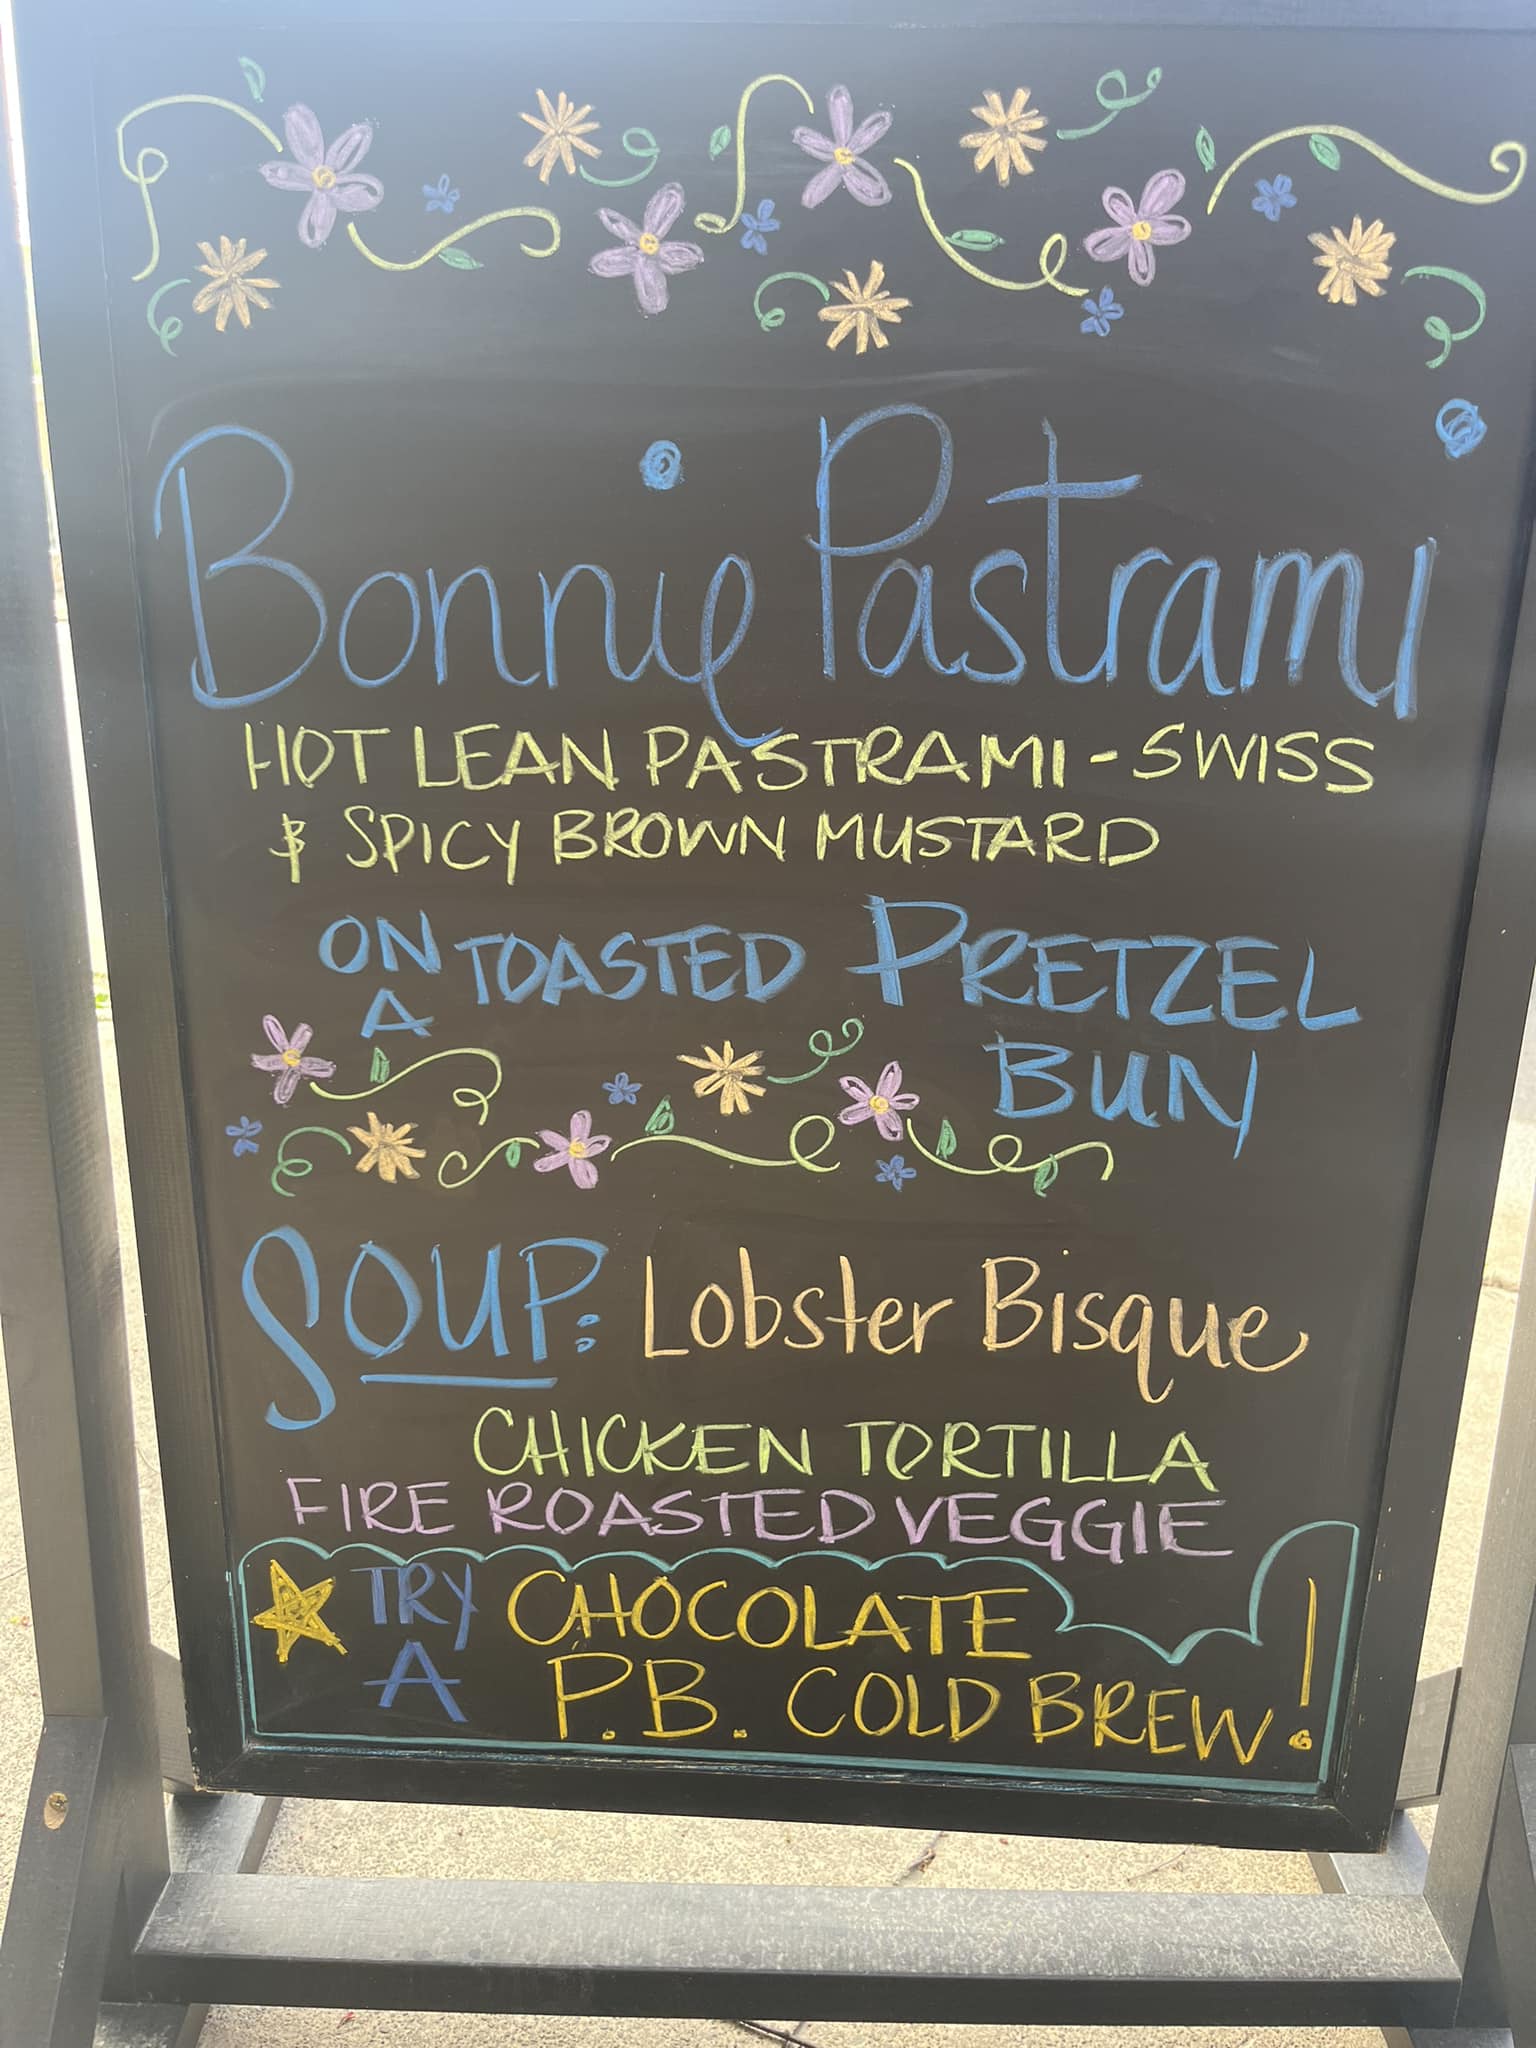 Bonnie Pastrami
HOT LEAN PASTRAMI - SWISS
& SPICY BROWN MUSTARD
ON A TOASTED PRETZEL
BUN
SOUP: Lobster Bisque
CHICKEN TORTILLA
FIRE ROASTED VEGGIE
TRY A CHOCOLATE
P.B. COLD BREW!